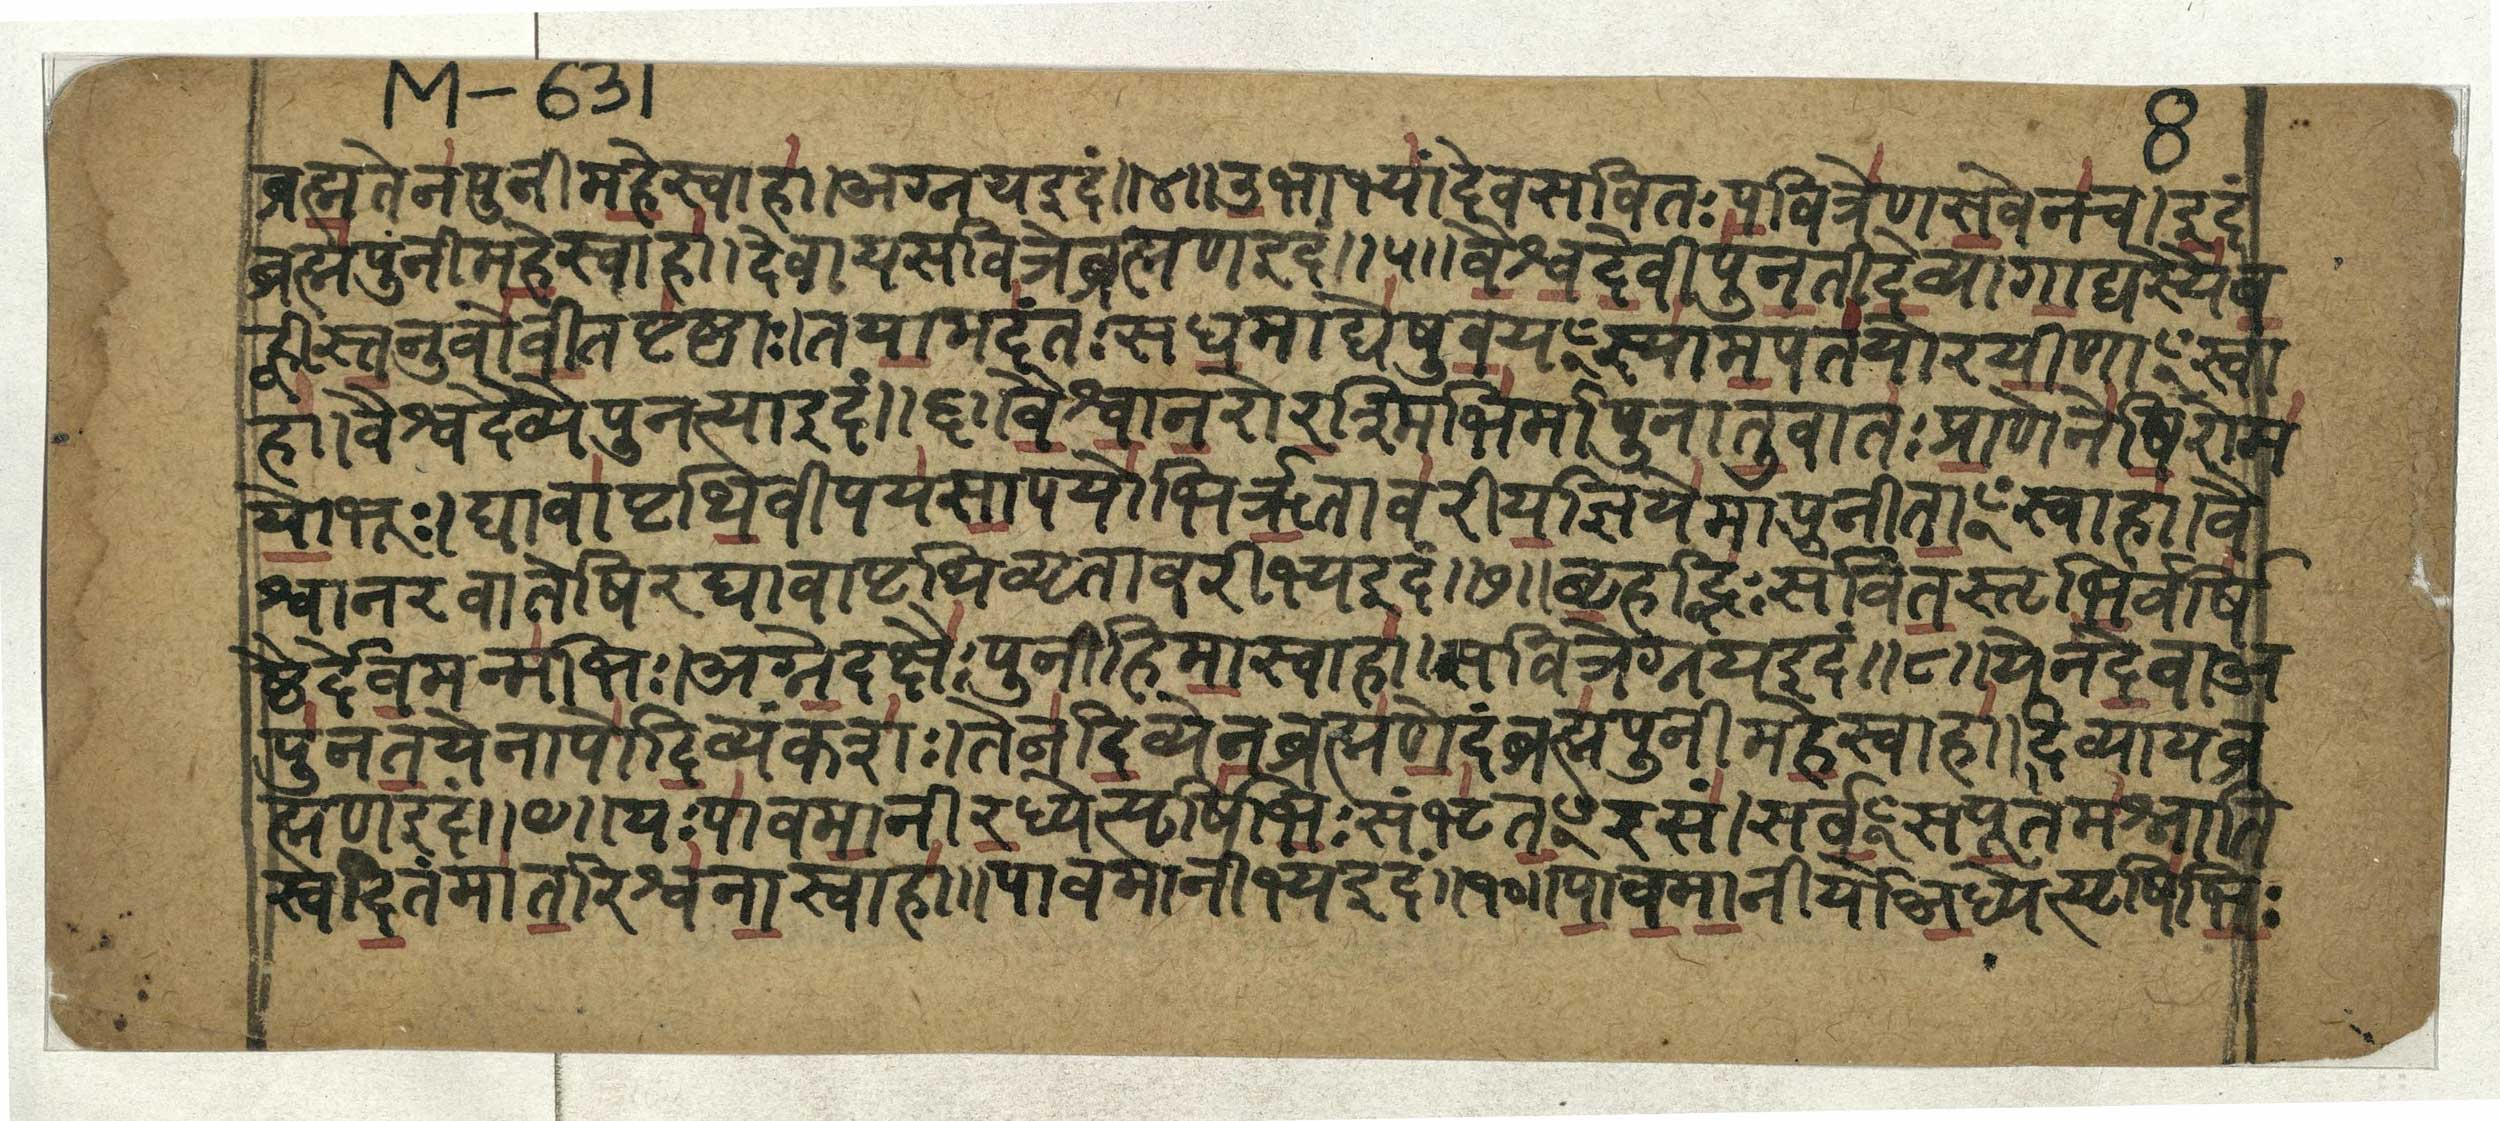 M-631
8
ब्रह्मतेनपुनीमहेस्वाहा।अग्नयइदं॥४॥उभाभ्यांदेवसवितःपवित्रेणसवेनच।इदं
ब्रह्मपुनीमहेस्वाहा।देवायसवित्रेब्रह्मणइदं॥५॥वैश्वदेवीपुनतीदेव्यागाद्यस्यैब
ह्वीस्तनुवोवीतपृष्ठाः।तयामदंतःसधमाद्येषुवयꣳस्यामपतयोरयीणाꣳस्वा
हा।वैश्वदेव्यैपुनत्याइदं॥६॥वैश्वानरोरश्मिभिर्मापुनातुवातःप्राणेनेषिरोम
योभूः।द्यावापृथिवीपयसापयोभिर्ऋतावरीयज्ञियेमापुनीताꣳस्वाहा।वै
श्वानरवातेषिरद्यावापृथिव्यृतावरीभ्यइदं॥७॥बृहद्भिःसवितस्तृभिर्वर्षि
ष्ठैर्देवमन्मभिः।अग्नेदक्षैःपुनीहिमास्वाहा।सवित्रेग्नयइदं॥८॥येनदेवाअ
पुनतयेनापोदिव्यंकशः।तेनदिव्येनब्रह्मणेदंब्रह्मपुनीमहेस्वाहा।दिव्यायब्र
ह्मणइदं॥९॥यःपावमानीरध्येत्यृषिभिःसंभृतꣳरसं।सर्वꣳसपूतमश्नाति
स्वदितंमातरिश्वनास्वाहा॥पावमानीभ्यइदं॥१०॥पावमानीर्योअध्येत्यृषिभिः